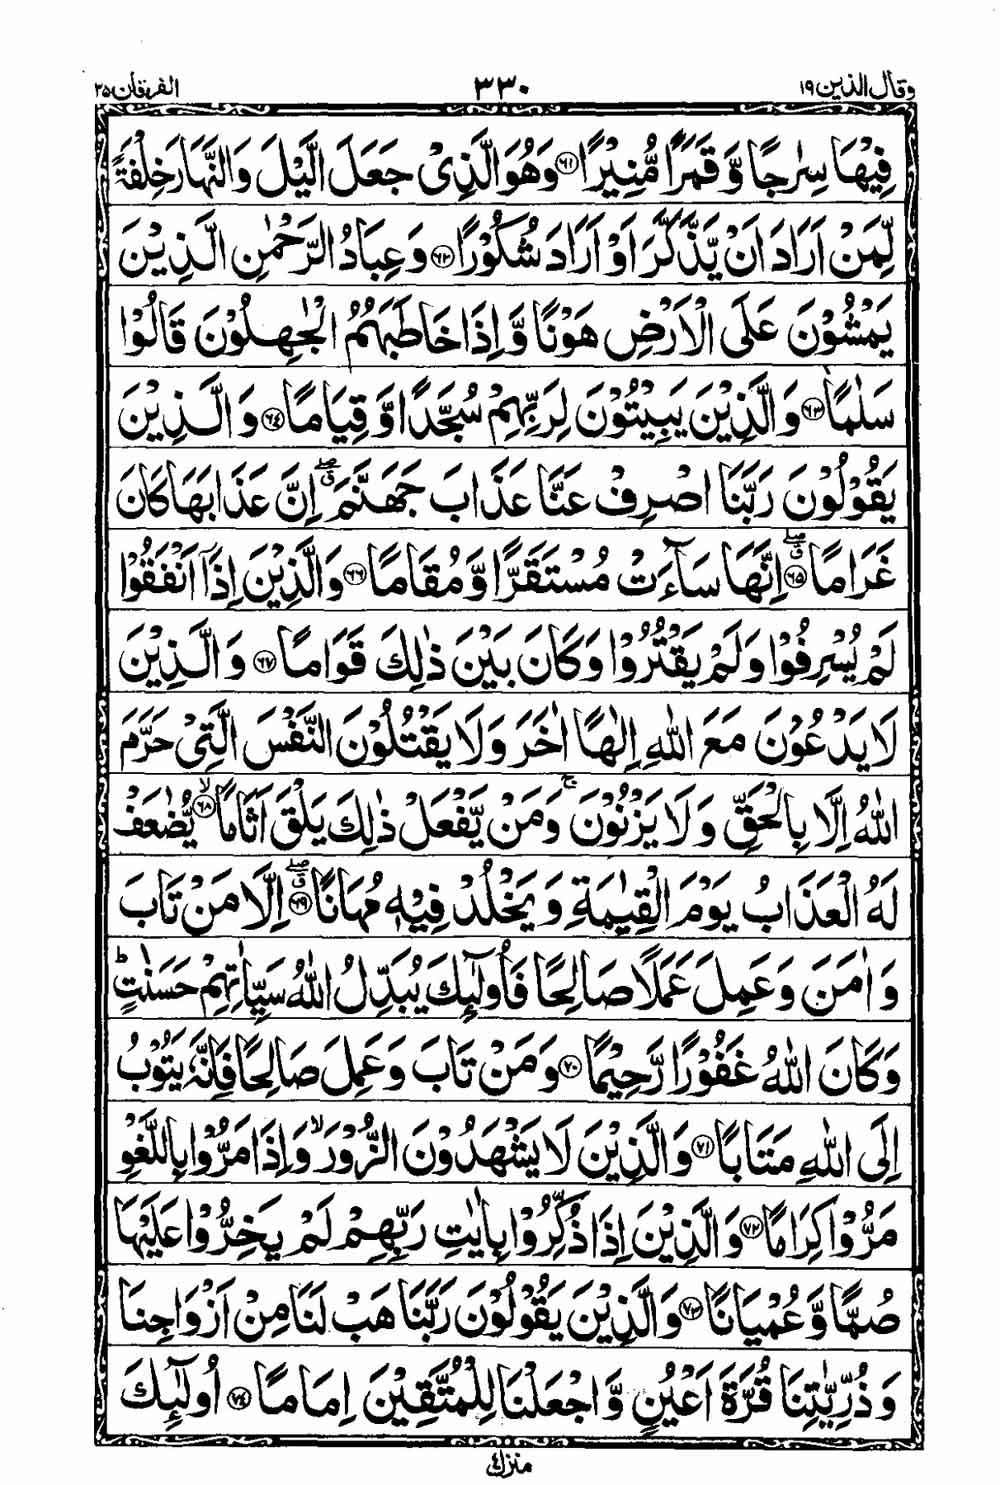 وقال الذین ۱۹ ۳۳۰ الفرقان ۲۵
فِیْهَا سِرٰجًا وَّ قَمَرًا مُّنِیْرًا ﴿۶۱﴾ وَهُوَ الَّذِیْ جَعَلَ الَّیْلَ وَالنَّهَارَ خِلْفَةً
لِّمَنْ اَرَادَ اَنْ یَّذَّكَّرَ اَوْ اَرَادَ شُكُوْرًا ﴿۶۲﴾ وَعِبَادُ الرَّحْمٰنِ الَّذِیْنَ
یَمْشُوْنَ عَلَی الْاَرْضِ هَوْنًا وَّ اِذَا خَاطَبَهُمُ الْجٰهِلُوْنَ قَالُوْا
سَلٰمًا ﴿۶۳﴾ وَالَّذِیْنَ یَبِیْتُوْنَ لِرَبِّهِمْ سُجَّدًا وَّ قِیَامًا ﴿۶۴﴾ وَالَّذِیْنَ
یَقُوْلُوْنَ رَبَّنَا اصْرِفْ عَنَّا عَذَابَ جَهَنَّمَ ۖق اِنَّ عَذَابَهَا كَانَ
غَرَامًا ﴿۶۵﴾ ۖق اِنَّهَا سَآءَتْ مُسْتَقَرًّا وَّ مُقَامًا ﴿۶۶﴾ وَالَّذِیْنَ اِذَاۤ اَنْفَقُوْا
لَمْ یُسْرِفُوْا وَلَمْ یَقْتُرُوْا وَكَانَ بَیْنَ ذٰلِكَ قَوَامًا ﴿۶۷﴾ وَالَّذِیْنَ
لَا یَدْعُوْنَ مَعَ اللهِ اِلٰهًا اٰخَرَ وَلَا یَقْتُلُوْنَ النَّفْسَ الَّتِیْ حَرَّمَ
اللهُ اِلَّا بِالْحَقِّ وَلَا یَزْنُوْنَ ۚ وَمَنْ یَّفْعَلْ ذٰلِكَ یَلْقَ اَثَامًا ﴿۶۸﴾ ۙ یُّضٰعَفْ
لَهُ الْعَذَابُ یَوْمَ الْقِیٰمَةِ وَیَخْلُدْ فِیْهٖ مُهَانًا ﴿۶۹﴾ ۖق اِلَّا مَنْ تَابَ
وَاٰمَنَ وَعَمِلَ عَمَلًا صَالِحًا فَاُولٰٓئِكَ یُبَدِّلُ اللهُ سَیِّاٰتِهِمْ حَسَنٰتٍ ؕ
وَكَانَ اللهُ غَفُوْرًا رَّحِیْمًا ﴿۷۰﴾ وَمَنْ تَابَ وَعَمِلَ صَالِحًا فَاِنَّهٗ یَتُوْبُ
اِلَی اللهِ مَتَابًا ﴿۷۱﴾ وَالَّذِیْنَ لَا یَشْهَدُوْنَ الزُّوْرَ ۙ وَاِذَا مَرُّوْا بِاللَّغْوِ
مَرُّوْا كِرَامًا ﴿۷۲﴾ وَالَّذِیْنَ اِذَا ذُكِّرُوْا بِاٰیٰتِ رَبِّهِمْ لَمْ یَخِرُّوْا عَلَیْهَا
صُمًّا وَّ عُمْیَانًا ﴿۷۳﴾ وَالَّذِیْنَ یَقُوْلُوْنَ رَبَّنَا هَبْ لَنَا مِنْ اَزْوَاجِنَا
وَذُرِّیّٰتِنَا قُرَّةَ اَعْیُنٍ وَّ اجْعَلْنَا لِلْمُتَّقِیْنَ اِمَامًا ﴿۷۴﴾ اُولٰٓئِكَ
منزل ٤